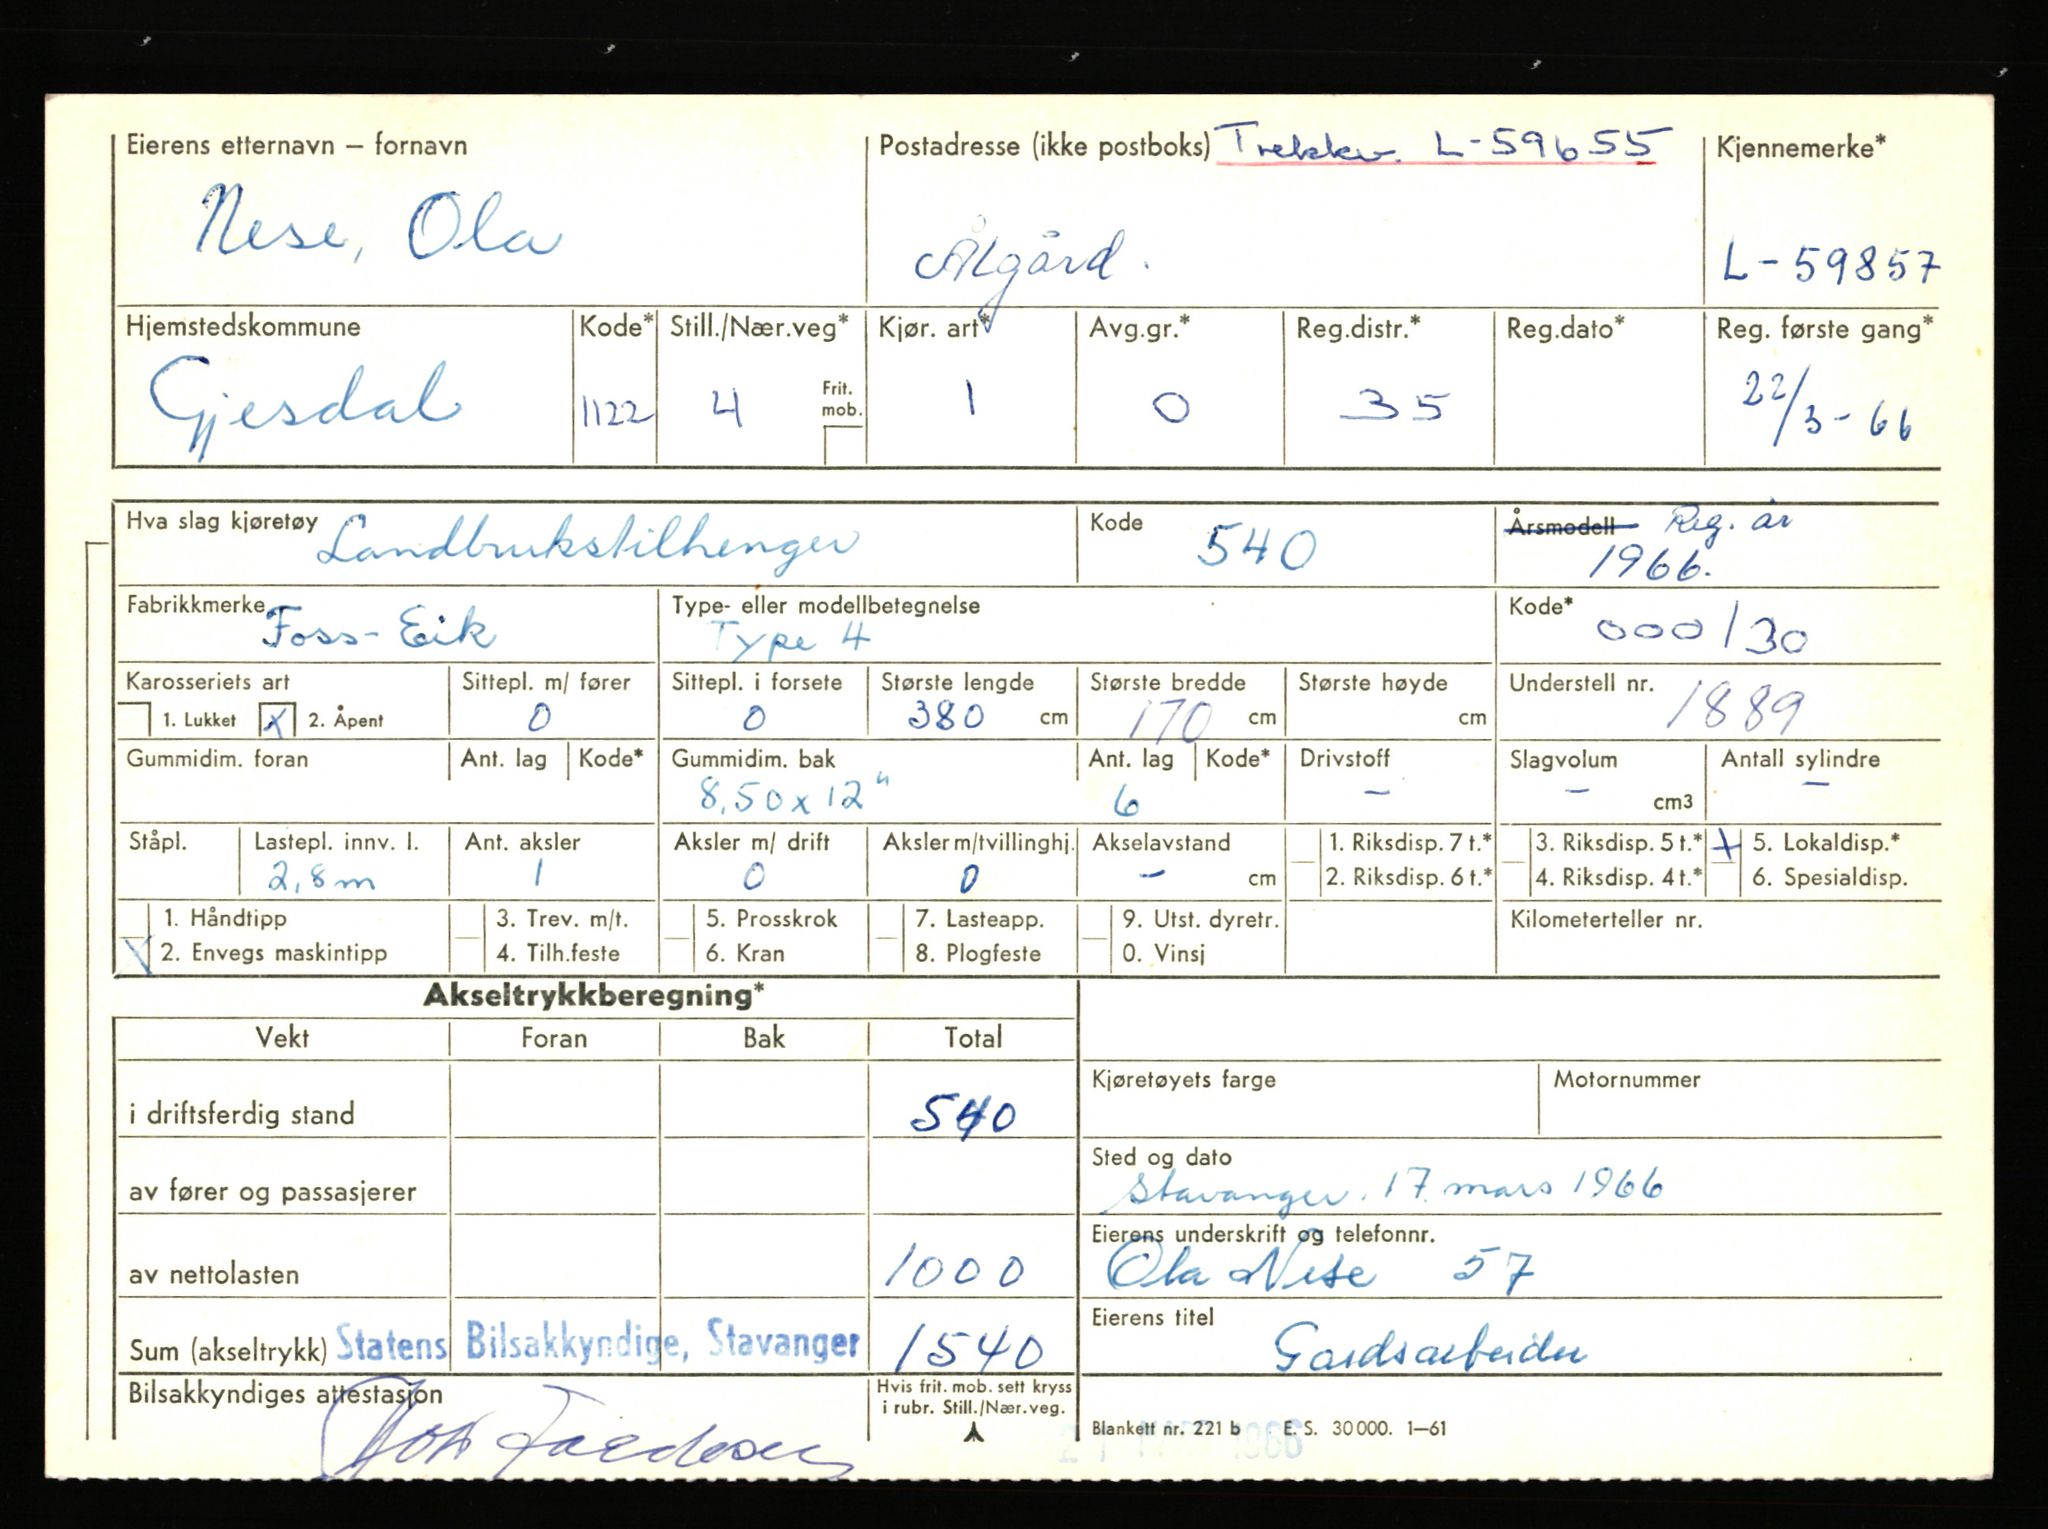 Eierens etternavn – fornavn
Nese, Ola
Postadresse (ikke postboks) Trekkv. L-59655
Ålgård.
Kjennemerke*
L-59857
Hjemstedskommune
Gjesdal
Kode*
1122
Still./Nær.veg*
4
Frit.
mob.
Kjør. art*
1
Avg.gr.*
0
Reg.distr.*
35
Reg.dato*
Reg. første gang*
22/3-66
Hva slag kjøretøy Landbrukstilhenger
Kode 540
Årsmodell Reg. år
1966.
Fabrikkmerke
Foss-Eik
Type- eller modellbetegnelse
Type 4
Kode* 000/30
Karosseriets art
1. Lukket x 2. Åpent
Sittepl. m/ fører
0
Sittepl. i forsete
0
Største lengde
380 cm
Største bredde
170 cm
Største høyde
cm
Understell nr. 1889
Gummidim. foran
Ant. lag Kode*
Gummidim. bak
8,50 x 12"
Ant. lag Kode*
6
Drivstoff
-
Slagvolum
- cm3
Antall sylindre
-
Ståpl.
Lastepl. innv. l.
2,8 m
Ant. aksler
1
Aksler m/ drift
0
Aksler m/tvillinghj.
0
Akselavstand
- cm
1. Riksdisp. 7 t.*
2. Riksdisp. 6 t.*
3. Riksdisp. 5 t.*
4. Riksdisp. 4 t.*
x 5. Lokaldisp.*
6. Spesialdisp.
1. Håndtipp
x 2. Envegs maskintipp
3. Trev. m/t.
4. Tilh.feste
5. Prosskrok
6. Kran
7. Lasteapp.
8. Plogfeste
9. Utst. dyretr.
0. Vinsj
Kilometerteller nr.
Akseltrykkberegning*
Vekt Foran Bak Total
i driftsferdig stand 540
av fører og passasjerer
av nettolasten 1000
Sum (akseltrykk) Statens Bilsakkyndige, Stavanger 1540
Bilsakkyndiges attestasjon
Hvis frit. mob. sett kryss
i rubr. Still./Nær.veg.
Kjøretøyets farge
Motornummer
Sted og dato
Stavanger. 17. mars 1966
Eierens underskrift og telefonnr.
Ola Nese 57
Eierens titel
Gardsarbeider
Blankett nr. 221 b E. S. 30 000. 1–61
1966